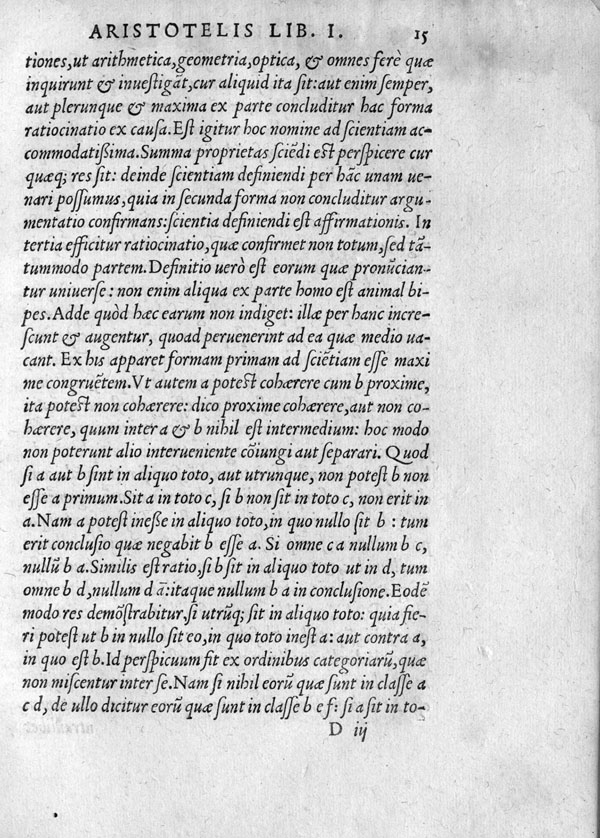 ARISTOTELIS LIB. I. 15
tiones,ut arithmetica,geometria,optica, & omnes ferè quæ
inquirunt & inueſtigāt,cur aliquid ita ſit:aut enim ſemper,
aut plerunque & maxima ex parte concluditur hac forma
ratiocinatio ex cauſa.Eſt igitur hoc nomine ad ſcientiam ac-
commodatißima.Summa proprietas ſciēdi eſt perſpicere cur
quæq; res ſit: deinde ſcientiam definiendi per hāc unam ue-
nari poſſumus,quia in ſecunda forma non concluditur argu-
mentatio confirmans:ſcientia definiendi eſt affirmationis. In
tertia efficitur ratiocinatio,quæ confirmet non totum,ſed tā-
tummodo partem.Definitio uerò eſt eorum quæ pronūcian-
tur uniuerſe: non enim aliqua ex parte homo eſt animal bi-
pes.Adde quòd hæc earum non indiget: illæ per hanc incre-
ſcunt & augentur, quoad peruenerint ad ea quæ medio ua-
cant. Ex his apparet formam primam ad ſciētiam eſſe maxi
me congruētem.Vt autem a poteſt cohærere cum b proxime,
ita poteſt non cohærere: dico proxime cohærere,aut non co-
hærere, quum inter a & b nihil eſt intermedium: hoc modo
non poterunt alio interueniente cōiungi aut ſeparari. Quod
ſi a aut b ſint in aliquo toto, aut utrunque, non poteſt b non
eſſe a primum.Sit a in toto c, ſi b non ſit in toto c, non erit in
a.Nam a poteſt ineße in aliquo toto,in quo nullo ſit b : tum
erit concluſio quæ negabit b eſſe a. Si omne c a nullum b c,
nullū b a.Similis eſt ratio,ſi b ſit in aliquo toto ut in d, tum
omne b d,nullum d a:itaque nullum b a in concluſione.Eodē
modo res demōſtrabitur,ſi utrūq; ſit in aliquo toto: quia fie-
ri poteſt ut b in nullo ſit eo,in quo toto ineſt a: aut contra a,
in quo eſt b.Id perſpicuum fit ex ordinibus categoriarū,quæ
non miſcentur inter ſe.Nam ſi nihil eorū quæ ſunt in claſſe a
c d, de ullo dicitur eorū quæ ſunt in claſſe b e f: ſi a ſit in to-
D iij